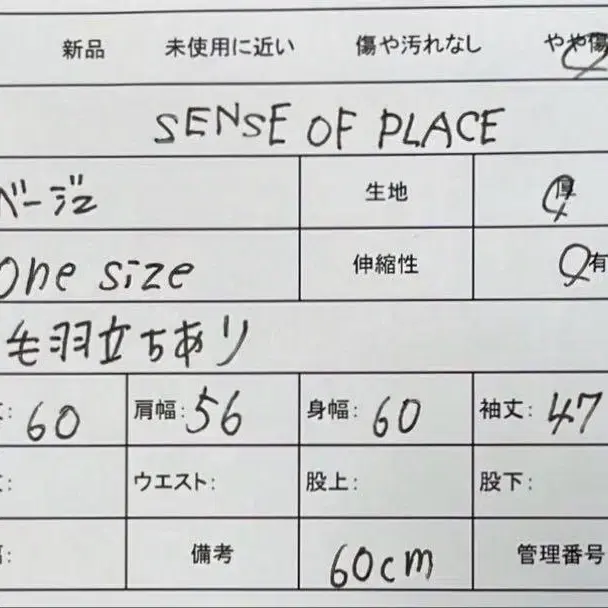 新品 未使用に近い 傷や汚れなし やや傷
SENSE OF PLACE
ベージュ 生地 厚
one size 伸縮性 有
毛羽立ちあり
: 60 肩幅: 56 身幅: 60 袖丈: 47
: ウエスト: 股上: 股下:
: 備考 60cm 管理番号